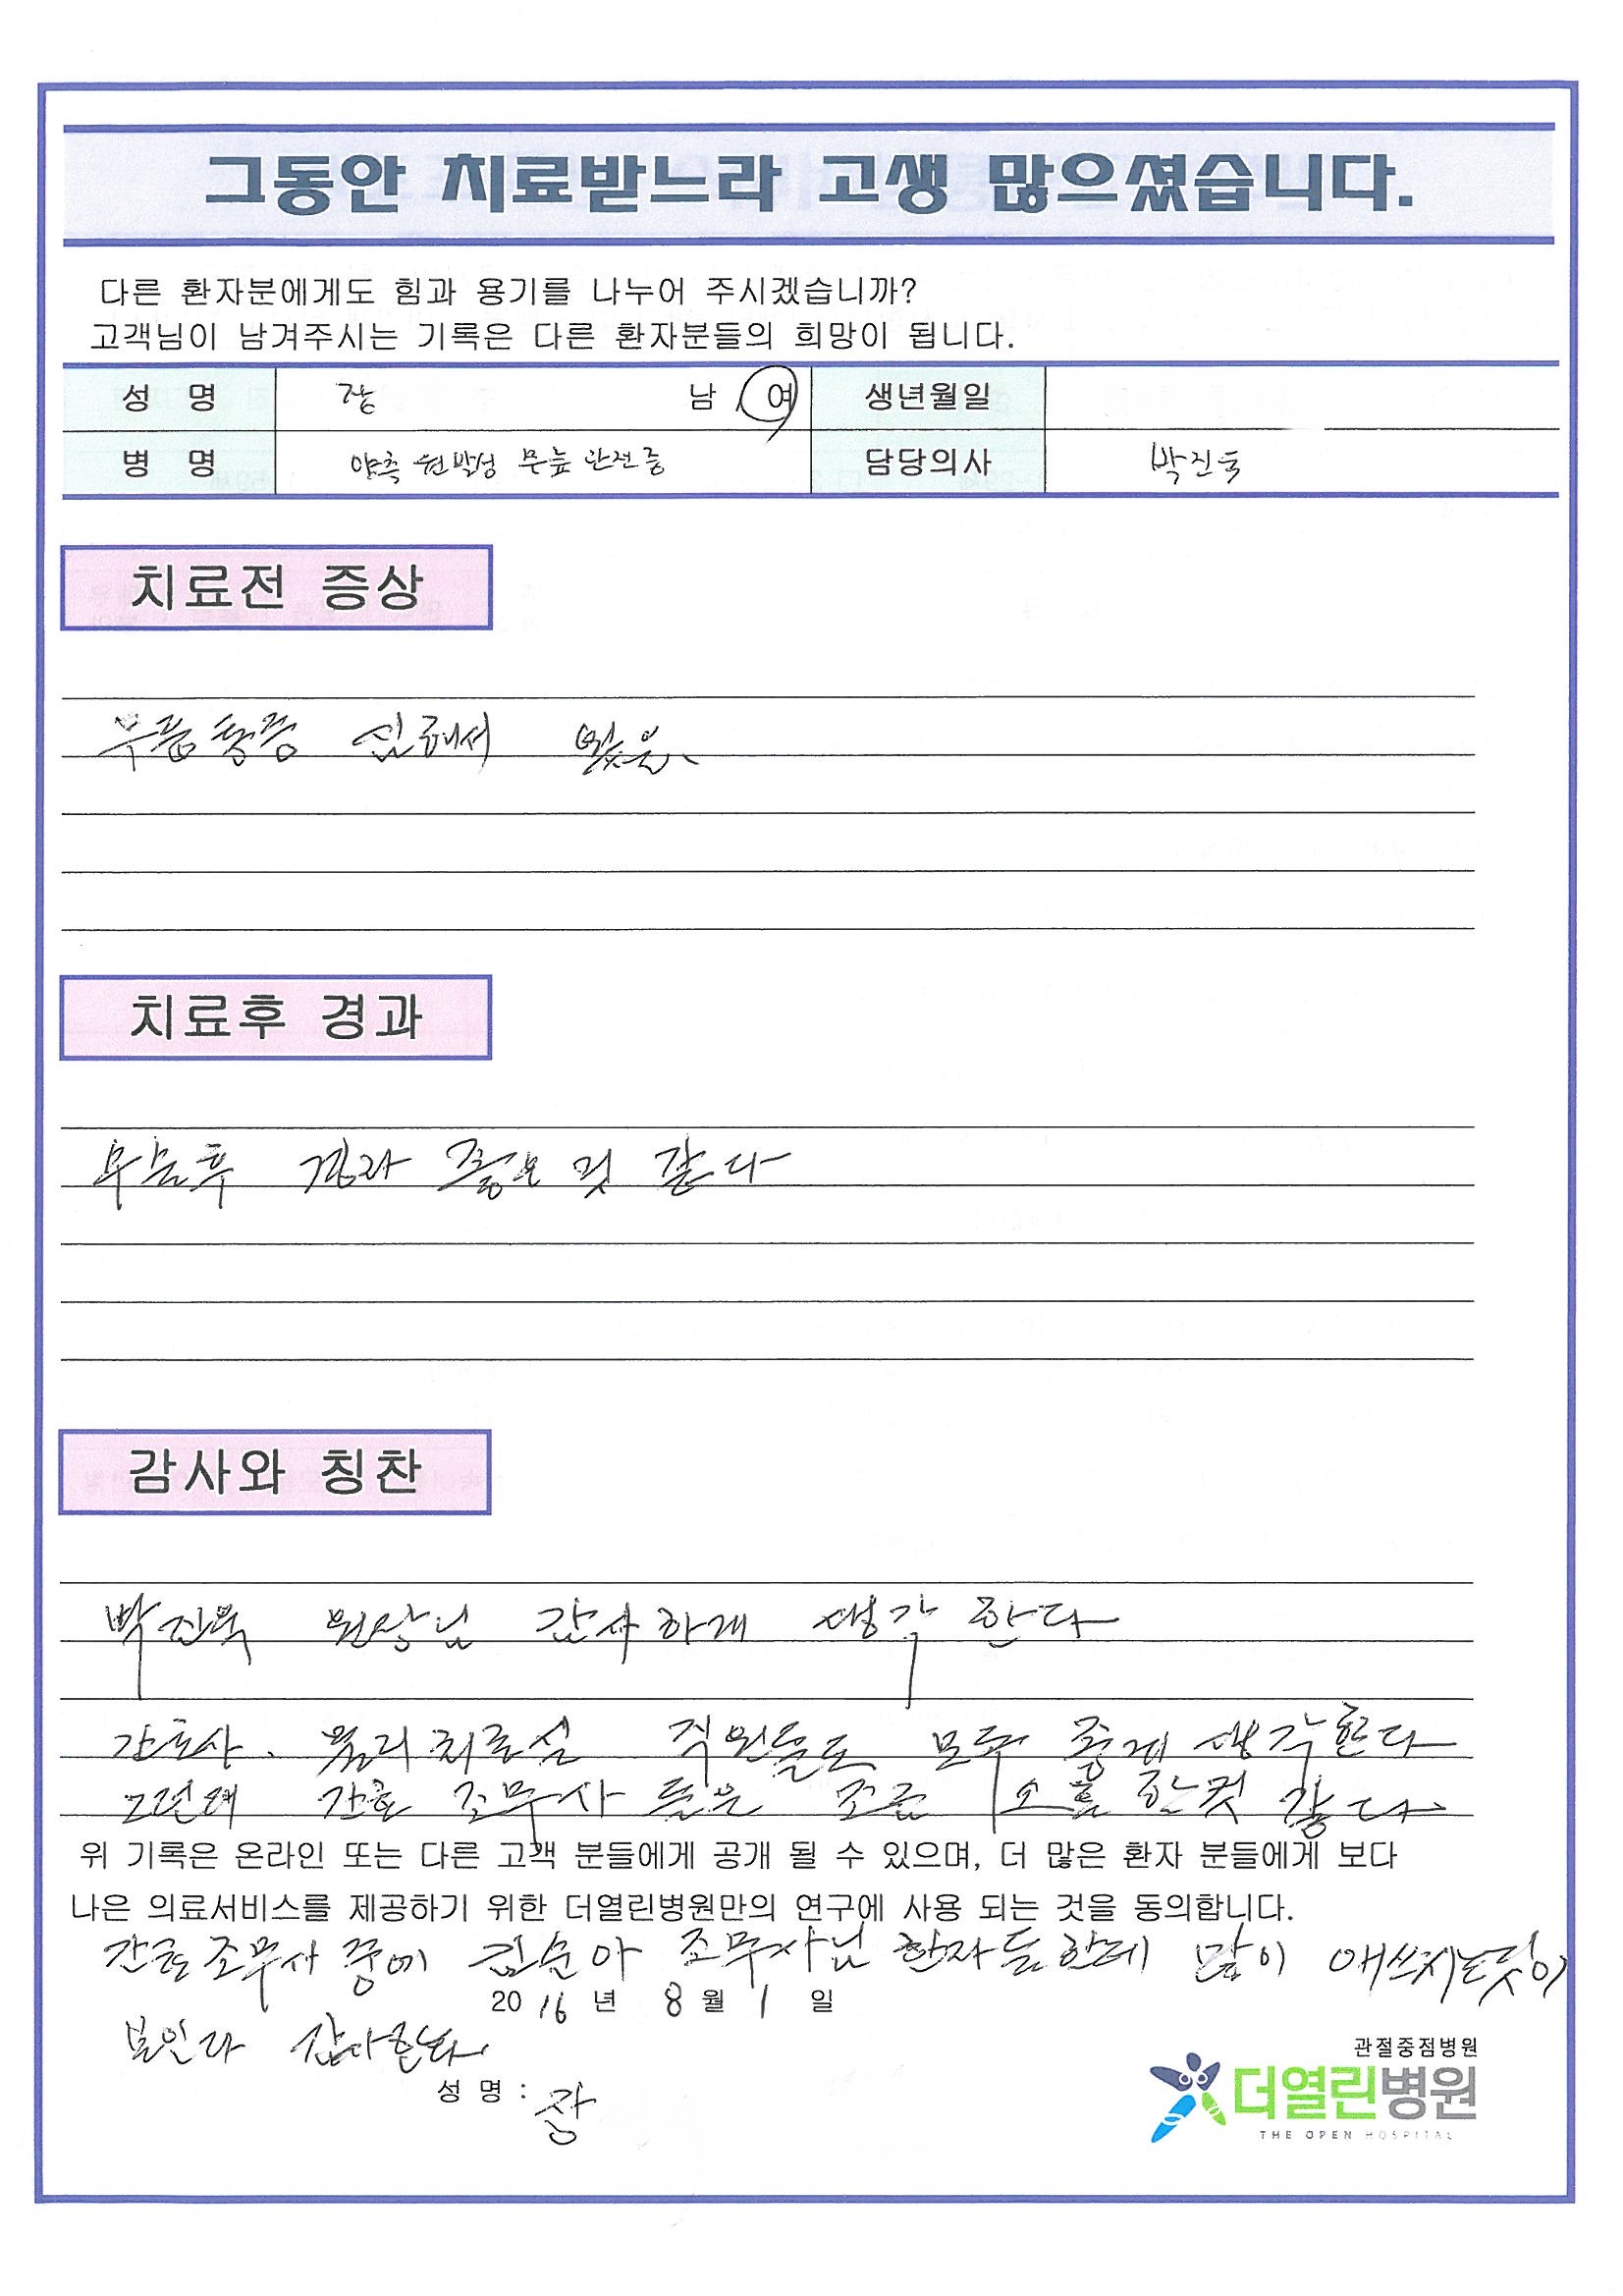 그동안 치료받느라 고생 많으셨습니다.
다른 환자분에게도 힘과 용기를 나누어 주시겠습니까?
고객님이 남겨주시는 기록은 다른 환자분들의 희망이 됩니다.
성 명 장 남 여 생년월일
병 명 양측 원발성 무릎 관전증 담당의사 박진욱
치료전 증상
무릎통증 심해서 왔음.
치료후 경과
경과 좋은 것 같다
감사와 칭찬
박진욱 원장님 감사하게 생각 한다
간호사. 물리치료실 직원들도 모두 좋게 생각한다
그런데 간호 조무사 들은 조금 소홀 한것 같다.
위 기록은 온라인 또는 다른 고객 분들에게 공개 될 수 있으며, 더 많은 환자 분들에게 보다
나은 의료서비스를 제공하기 위한 더열린병원만의 연구에 사용 되는 것을 동의합니다.
간호조무사 중에 김순아 조무사님 환자들한테 많이 애쓰시는듯이
2016 년 8 월 1 일
보인다 감사한다.
성 명 : 장
관절중점병원
더열린병원
THE OPEN HOSPITAL